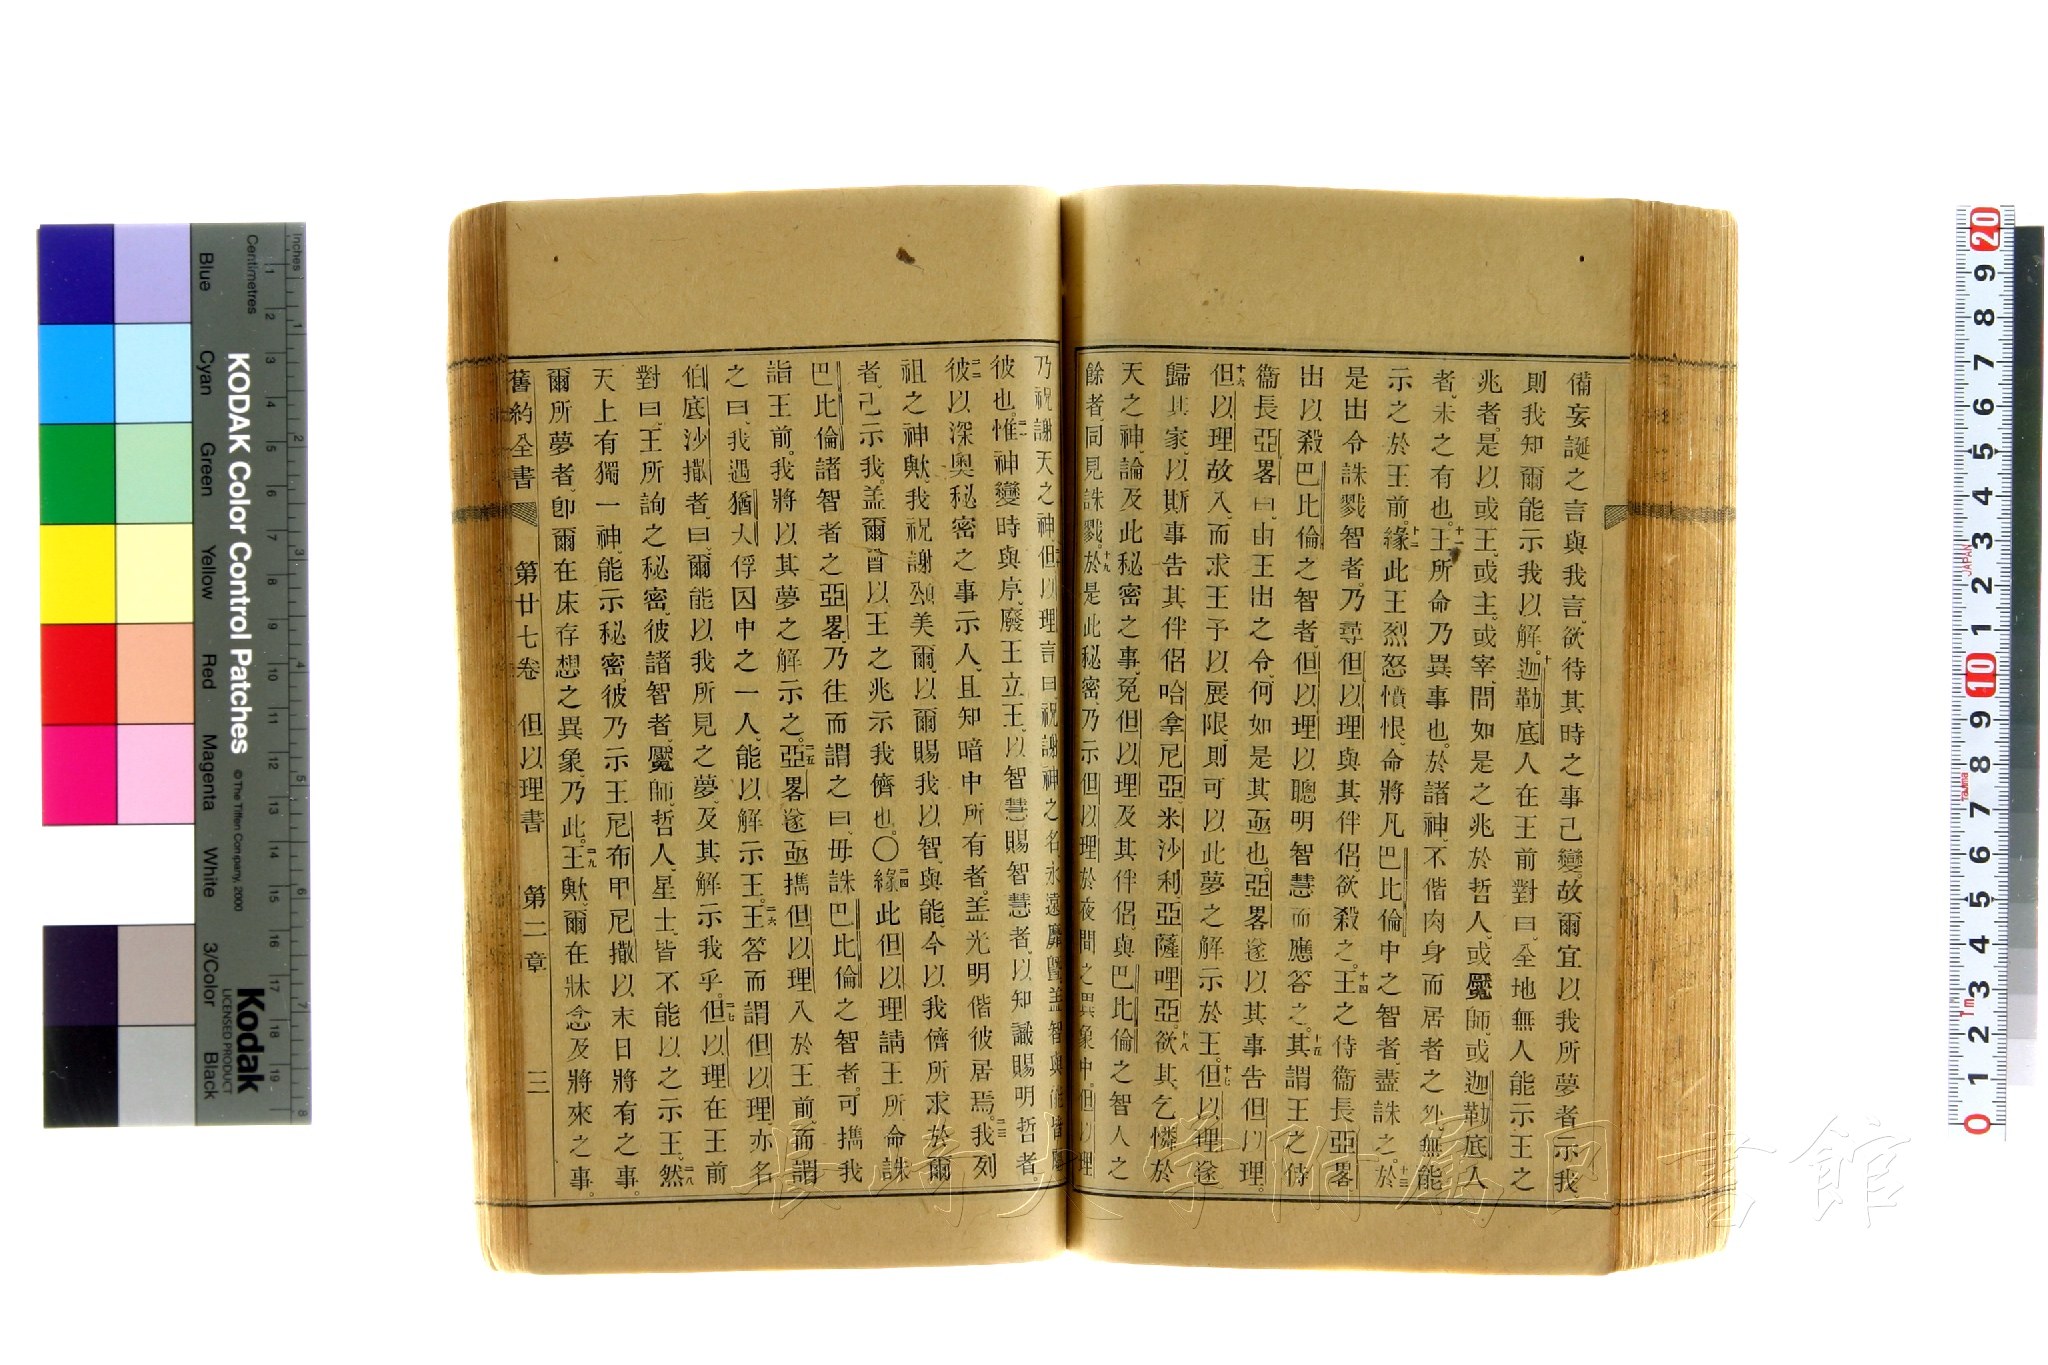 備妄誕之言與我言、欲待其時之事已變、故爾宜以我所夢者示我
則我知爾能示我以解。十迦勒底人在王前對曰、全地無人能示王之
兆者、是以或王、或主、或宰、問如是之兆於哲人、或魘師、或迦勒底人
者、未之有也。十一王所命乃異事也。於諸神、不偕肉身而居者之外、無能
示之於王前。十二緣此王烈怒憤恨、命將凡巴比倫中之智者、盡誅之。十三於
是出令誅戮智者、乃尋但以理與其伴侶、欲殺之。十四王之侍衞長亞畧
出以殺巴比倫之智者、但以理以聰明智慧而應答之。十五其謂王之侍
衞長亞畧曰、由王出之令、何如是其亟也。亞畧遂以其事告但以理。
十六但以理故入而求王予以展限、則可以此夢之解示於王。十七但以理遂
歸其家、以斯事告其伴侶哈拿尼亞、米沙利、亞薩哩亞、十八欲其乞憐於
天之神、論及此秘密之事、免但以理及其伴侶、與巴比倫之智人之
餘者、同見誅戮。十九於是此秘密、乃示但以理於夜間之異象中。但以理
乃祝謝天之神、二十但以理言曰、祝謝神之名、永遠靡曁、蓋智與能皆屬
彼也。二一惟神變時與序、廢王立王、以智慧賜智慧者、以知識賜明哲者。
二二彼以深奧秘密之事示人、且知暗中所有者、蓋光明偕彼居焉。二三我列
祖之神歟、我祝謝頌美爾、以爾賜我以智與能、今以我儕所求於爾
者、已示我。蓋爾曾以王之兆示我儕也。〇二四緣此但以理請王所命誅
巴比倫諸智者之亞畧、乃往而謂之曰、毋誅巴比倫之智者、可攜我
詣王前。我將以其夢之解示之。二五亞畧遂亟攜但以理入於王前、而謂
之曰、我遇猶大俘囚中之一人、能以解示王。二六王答而謂但以理亦名
伯底沙撒者、曰、爾能以我所見之夢、及其解示我乎。二七但以理在王前
對曰、王所詢之秘密、彼諸智者、魘師、哲人、星士、皆不能以之示王。二八然
天上有獨一神、能示秘密、彼乃示王尼布甲尼撒以末日將有之事。
爾所夢者、卽爾在床存想之異象、乃此。二九王歟、爾在牀念及將來之事。
舊約全書 第廿七卷 但以理書 第二章 三
長崎大学附属図書館
KODAK Color Control Patches
©The Tiffen Company, 2000
Kodak
LICENSED PRODUCT
Inches
Centimetres
Blue Cyan Green Yellow Red Magenta White 3/Color Black
JAPAN